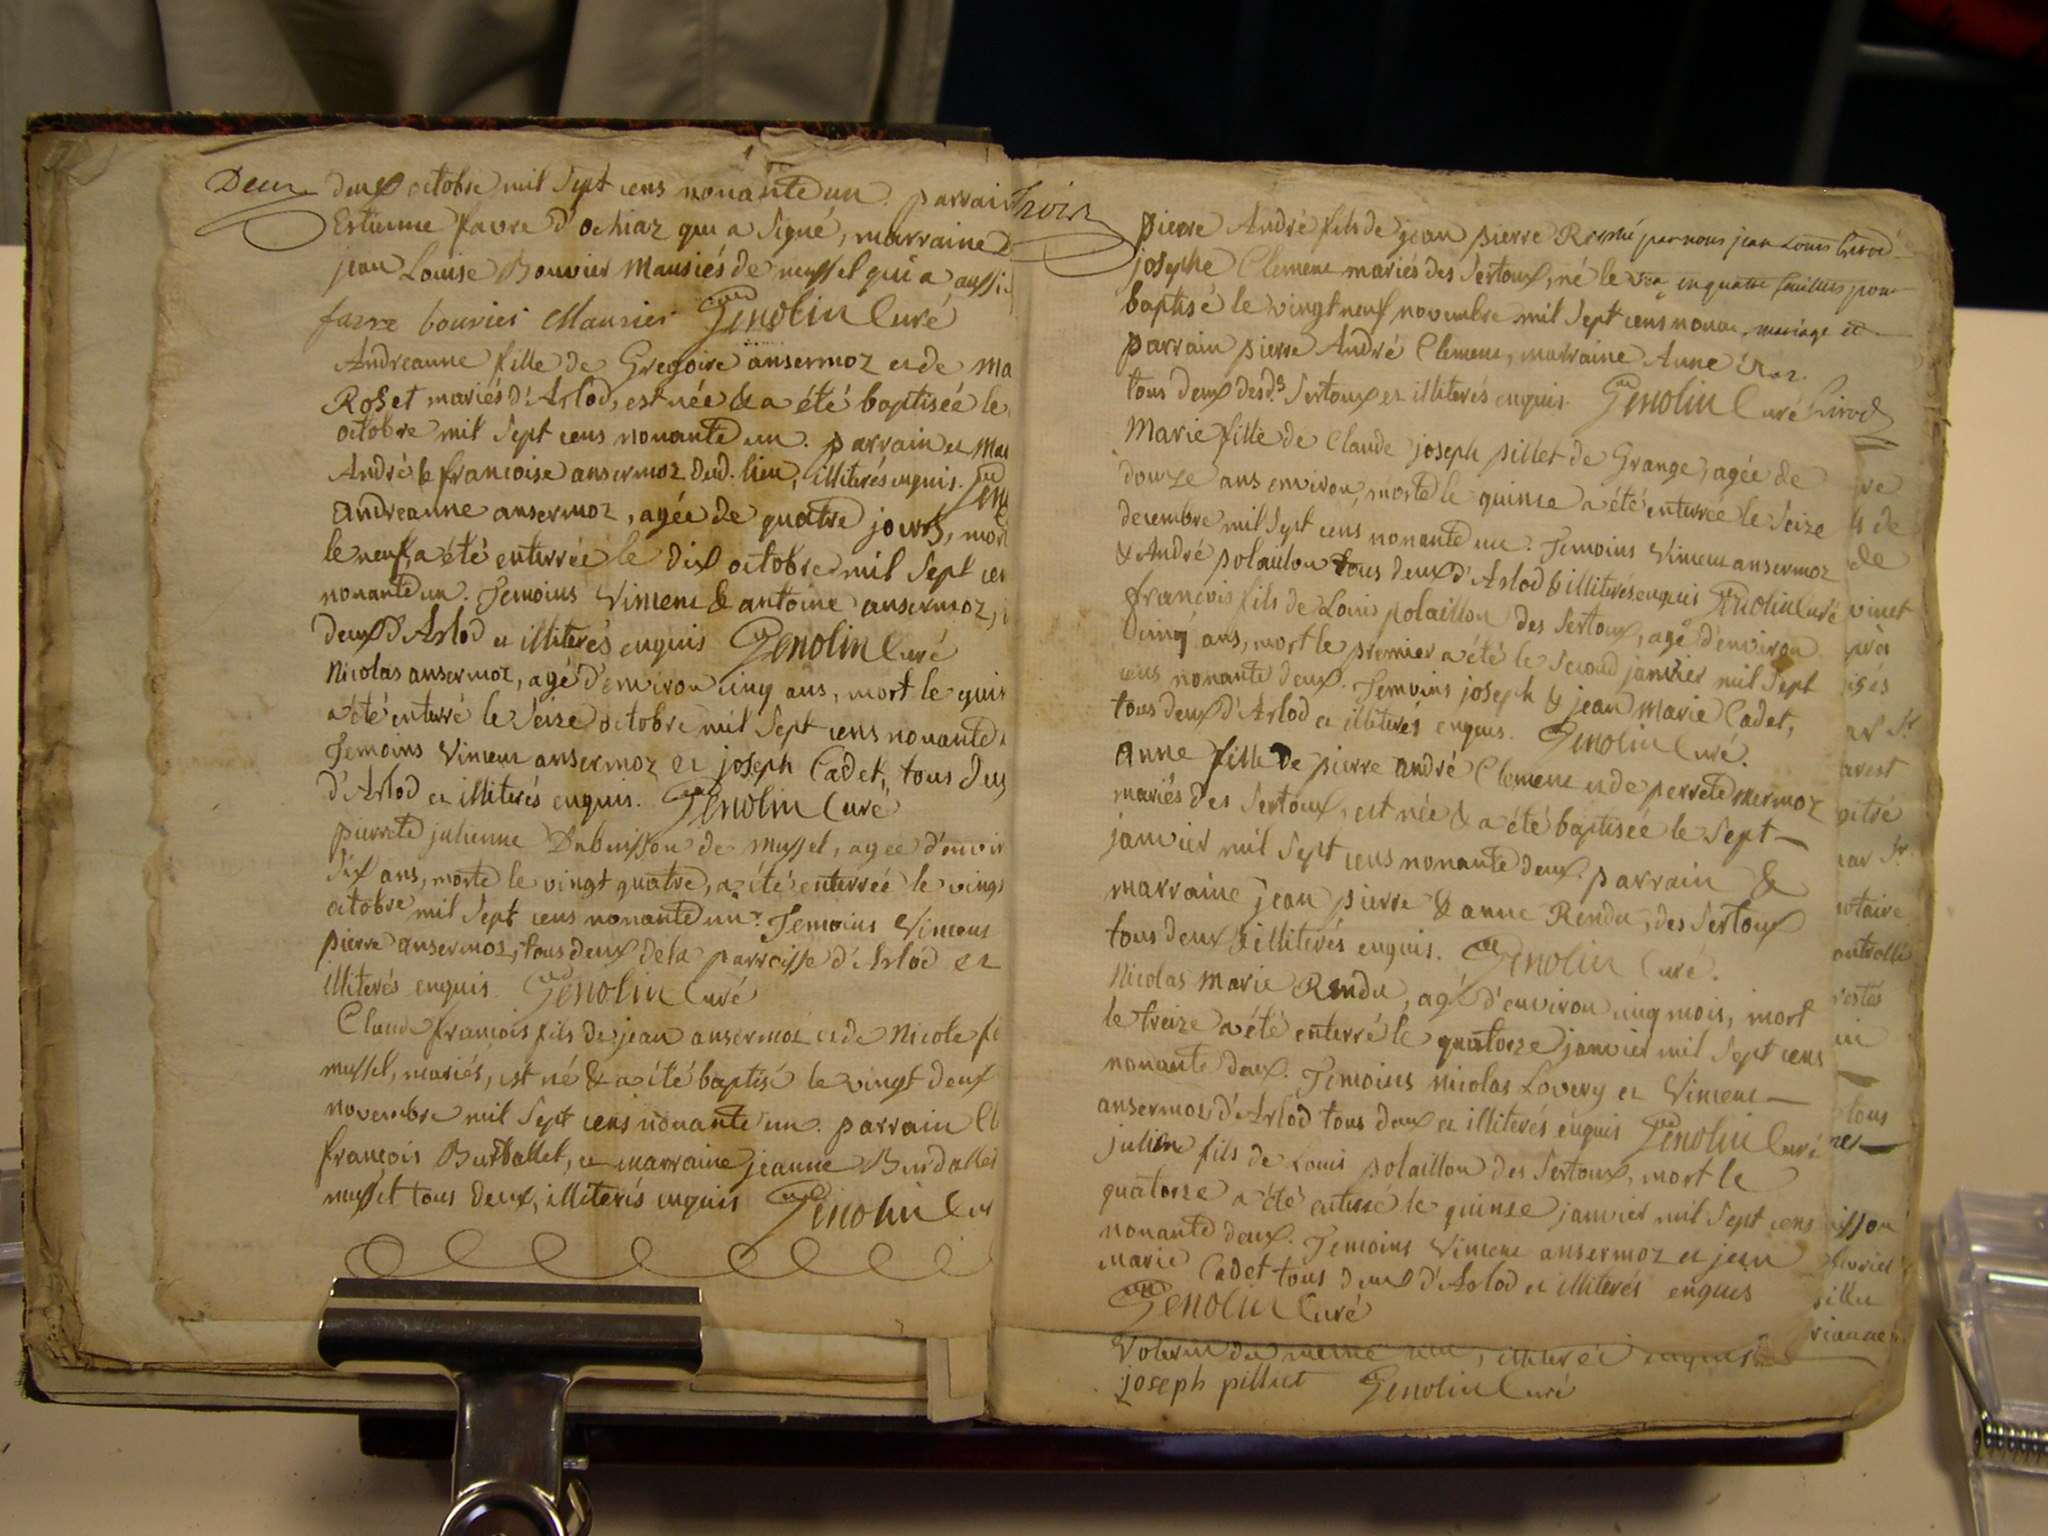 Deux
deux octobre mil Sept cens nonante un. parrain
Estienne favre d'ochiaz qui a Signé, marraine
jean Louise Bouvier Mausiés de mussel qui a aussi
favre bouvier Mausier Genolin Curé
Andreanne fille de Gregoire ansermoz et de Ma
Roset mariés d'Arlod, est née & a été baptisée le
octobre mil Sept cens nonante un. parrain et Mar
André & francoise ansermoz dud. lieu, illiterés enquis. Gen
Andreanne ansermoz, agée de quatre jours, mor
le neuf, a été enterrée le dix octobre mil Sept cen
nonante un. Temoins Vincent & antoine ansermoz,
deux d'Arlod et illiterés enquis Genolin Curé
Nicolas ansermoz, agé d'environ cinq ans, mort le quin
a été enterré le Seize octobre mil Sept cens nonante
Temoins Vincent ansermoz et joseph Cadet, tous deux
d'Arlod et illiterés enquis. Genolin Curé
pierrette julienne Dubuisson de mussel, agée d'envir
Six ans, morte le vingt quatre, a été enterrée le vingt
octobre mil Sept cens nonante un. Temoins Vincent
pierre ansermoz, tous deux de la parroisse d'Arlod et
illiterés enquis Genolin Curé
Claude francois fils de jean ansermoz et de Nicole
mussel, mariés, est né & a été baptisé le vingt deux
novembre mil Sept cens nonante un. parrain Cl
francois Burdallet, et marraine jeanne Burdallet
mussel tous deux, illiterés enquis Genolin Cur
Trois
pierre André fils de jean pierre Re par nous jean Louis Girod
josephe Clement mariés des Sertoux, né le en quatre feuillets pour
baptisé le vingt neuf novembre mil Sept cens nonan mariage et
parrain pierre André Clement, marraine Anne
tous deux desd.s Sertoux et illiterés enquis. Genolin Curé Girod
Marie fille de Claude joseph pillet de Grange, agée de
douze ans environ, morte le quinze a été enterrée le Seize
decembre mil Sept cens nonante un. Temoins Vincent ansermoz
& André polaillon tous deux d'Arlod & illiterés enquis Genolin Curé
francois fils de Louis polaillon des Sertoux, agé d'environ
cinq ans, mort le premier a été le Second janvier mil Sept
cens nonante deux. Temoins joseph & jean marie Cadet,
tous deux d'Arlod et illiterés enquis. Genolin Curé.
Anne fille de pierre andré Clement et de perrete Mermoz
mariés des Sertoux, est née & a été baptisée le Sept
janvier mil Sept cens nonante deux. parrain &
marraine jean pierre & anne Rendu, des Sertoux
tous deux & illiterés enquis. Genolin Curé.
Nicolas Marie Rendu, agé d'environ cinq mois, mort
le treize a été enterré le quatorze janvier mil Sept cens
nonante deux. Temoins nicolas Lovery et Vincent
ansermoz d'Arlod tous deux et illiterés enquis Genolin Curé
julien fils de Louis polaillon des Sertoux, mort le
quatorze a été enterré le quinze janvier mil Sept cens
nonante deux. Temoins Vincent ansermoz et jean
marie Cadet tous deux d'Arlod et illiterés enquis
Genolin Curé
du meme lieu, illiteréi enquis
joseph pillet Genolin Curé
re
de
vinet
arest
notaire
tous